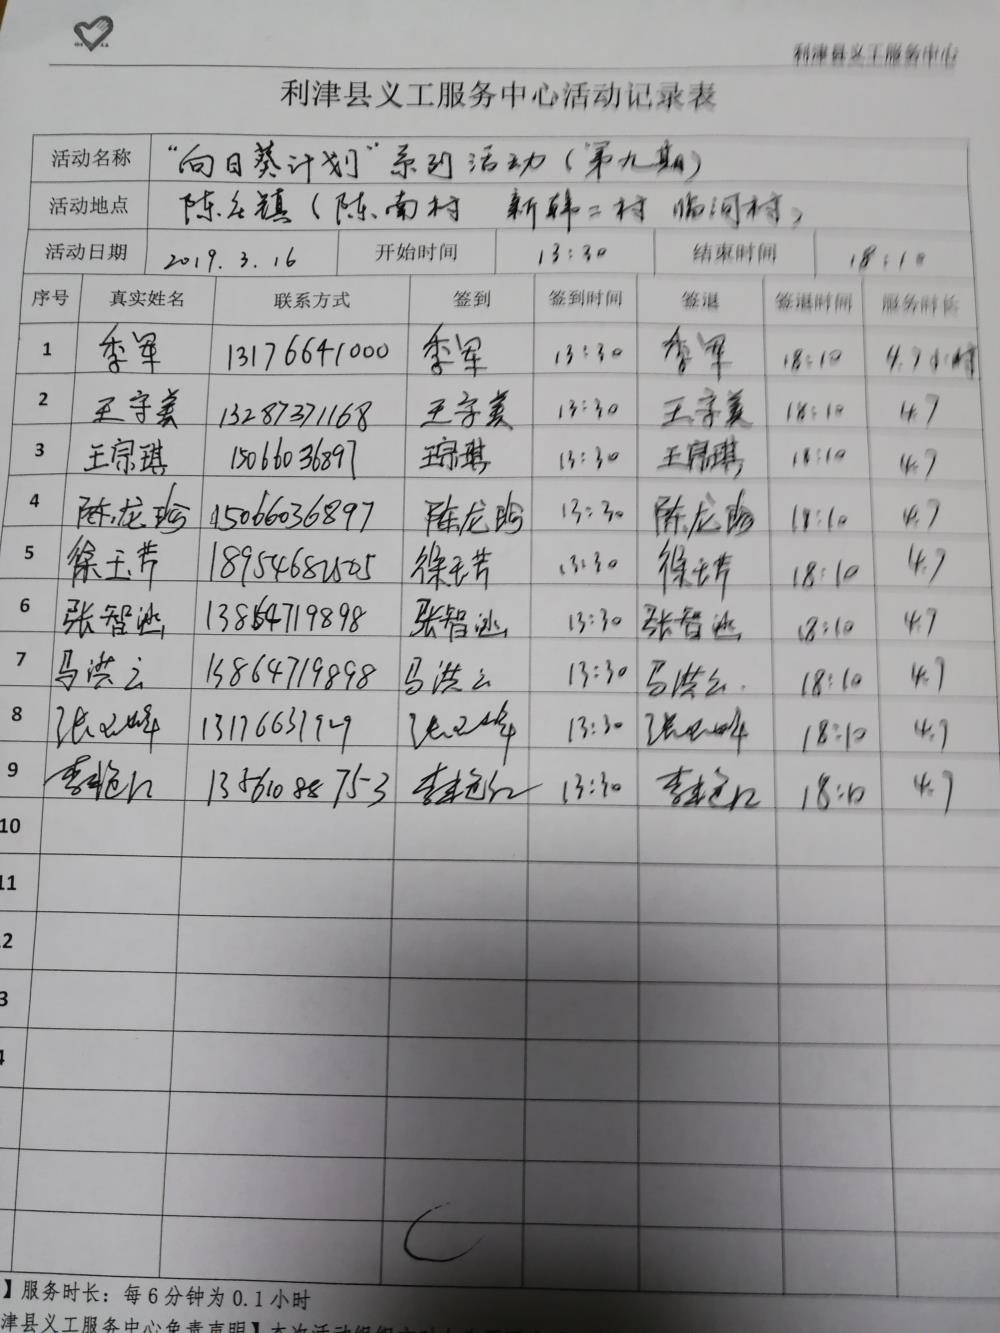 利津县义工服务中心
利津县义工服务中心活动记录表
活动名称 “向日葵计划”系列活动(第九期)
活动地点 陈庄镇(陈南村 新韩二村 临河村)
活动日期 2019.3.16 开始时间 13:30 结束时间 18:10
序号 真实姓名 联系方式 签到 签到时间 签退 签退时间 服务时长
1 李军 13176641000 李军 13:30 李军 18:10 4.7小时
2 王字美 13287371168 王字美 13:30 王字美 18:10 4.7
3 王宗琪 15066036897 王宗琪 13:30 王宗琪 18:10 4.7
4 陈龙 15066036897 陈龙 13:30 陈龙 18:10 4.7
5 徐玉芳 18954682505 徐玉芳 13:30 徐玉芳 18:10 4.7
6 张智涵 13864719898 张智涵 13:30 张智涵 18:10 4.7
7 马洪云 13864719898 马洪云 13:30 马洪云 18:10 4.7
8 13:30 18:10 4.7
9 13561088753 13:30 18:10 4.7
10
11
2
3
4
】服务时长:每6分钟为0.1小时
津县义工服务中心免责声明】本次活动组织